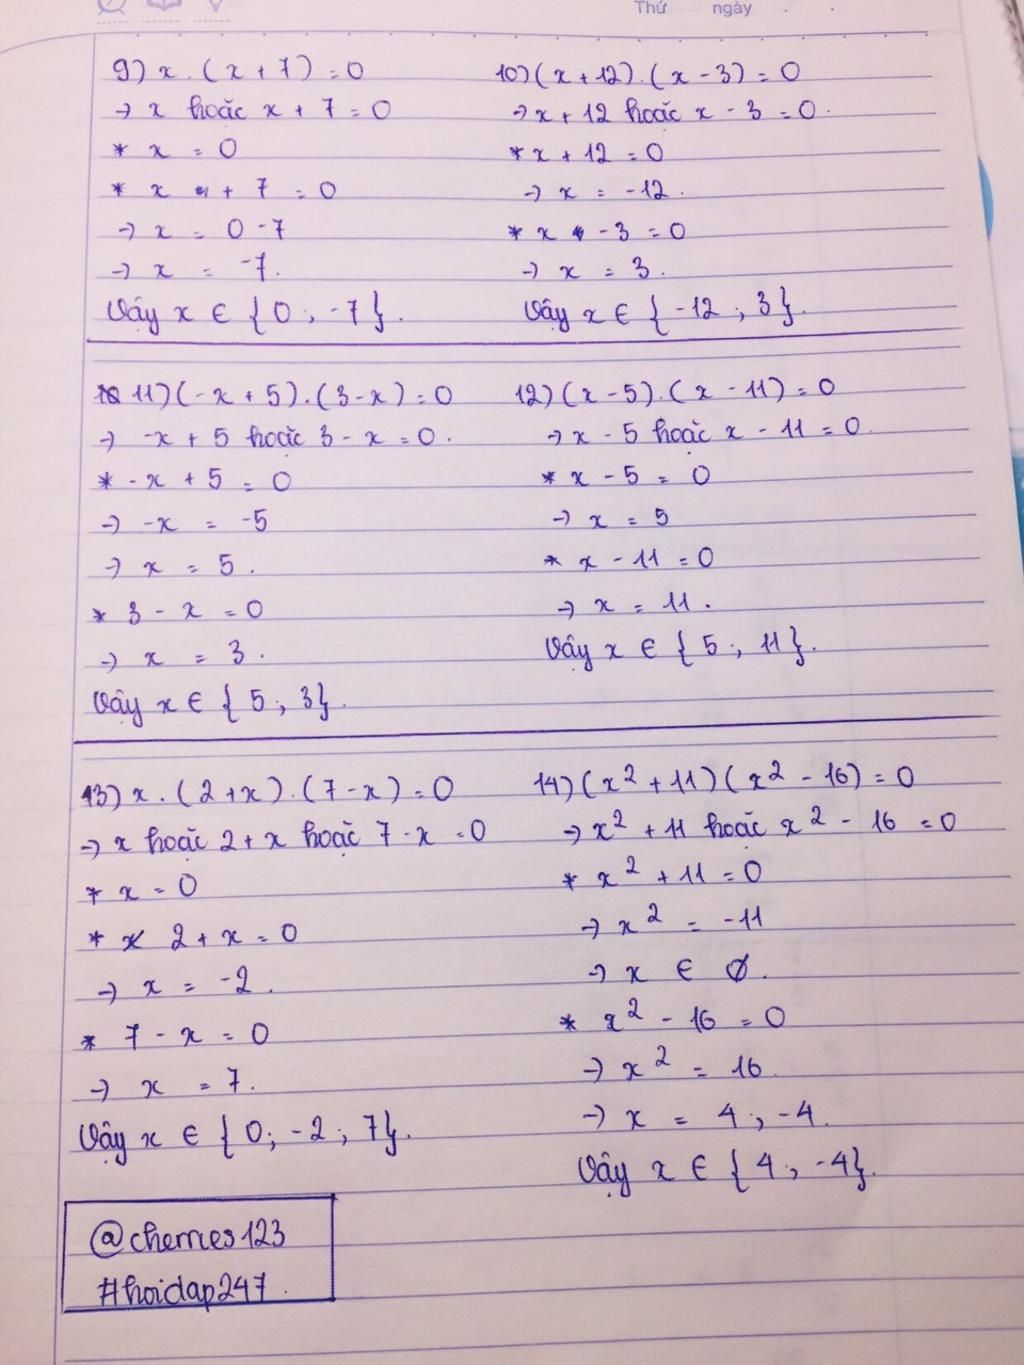 Thứ ngày
9) x . (x + 7) = 0
→ x hoặc x + 7 = 0
* x = 0
* x + 7 = 0
→ x = 0 - 7
→ x = -7.
Vậy x ∈ {0 ; -7}.
10) (x + 12) . (x - 3) = 0
→ x + 12 hoặc x - 3 = 0.
* x + 12 = 0
→ x = -12.
* x - 3 = 0
→ x = 3.
Vậy x ∈ {-12 ; 3}.
11) (-x + 5) . (3 - x) = 0
→ -x + 5 hoặc 3 - x = 0.
* -x + 5 = 0
→ -x = -5
→ x = 5.
* 3 - x = 0
→ x = 3.
Vậy x ∈ {5 ; 3}.
12) (x - 5) . (x - 11) = 0
→ x - 5 hoặc x - 11 = 0.
* x - 5 = 0
→ x = 5
* x - 11 = 0
→ x = 11.
Vậy x ∈ {5 ; 11}.
13) x . (2 + x) . (7 - x) = 0
→ x hoặc 2 + x hoặc 7 - x = 0
* x = 0
* 2 + x = 0
→ x = -2.
* 7 - x = 0
→ x = 7.
Vậy x ∈ {0 ; -2 ; 7}.
14) (x² + 11) (x² - 16) = 0
→ x² + 11 hoặc x² - 16 = 0
* x² + 11 = 0
→ x² = -11
→ x ∈ Ø.
* x² - 16 = 0
→ x² = 16.
→ x = 4 ; -4.
Vậy x ∈ {4 ; -4}.
@chemes123
#hoidap247.